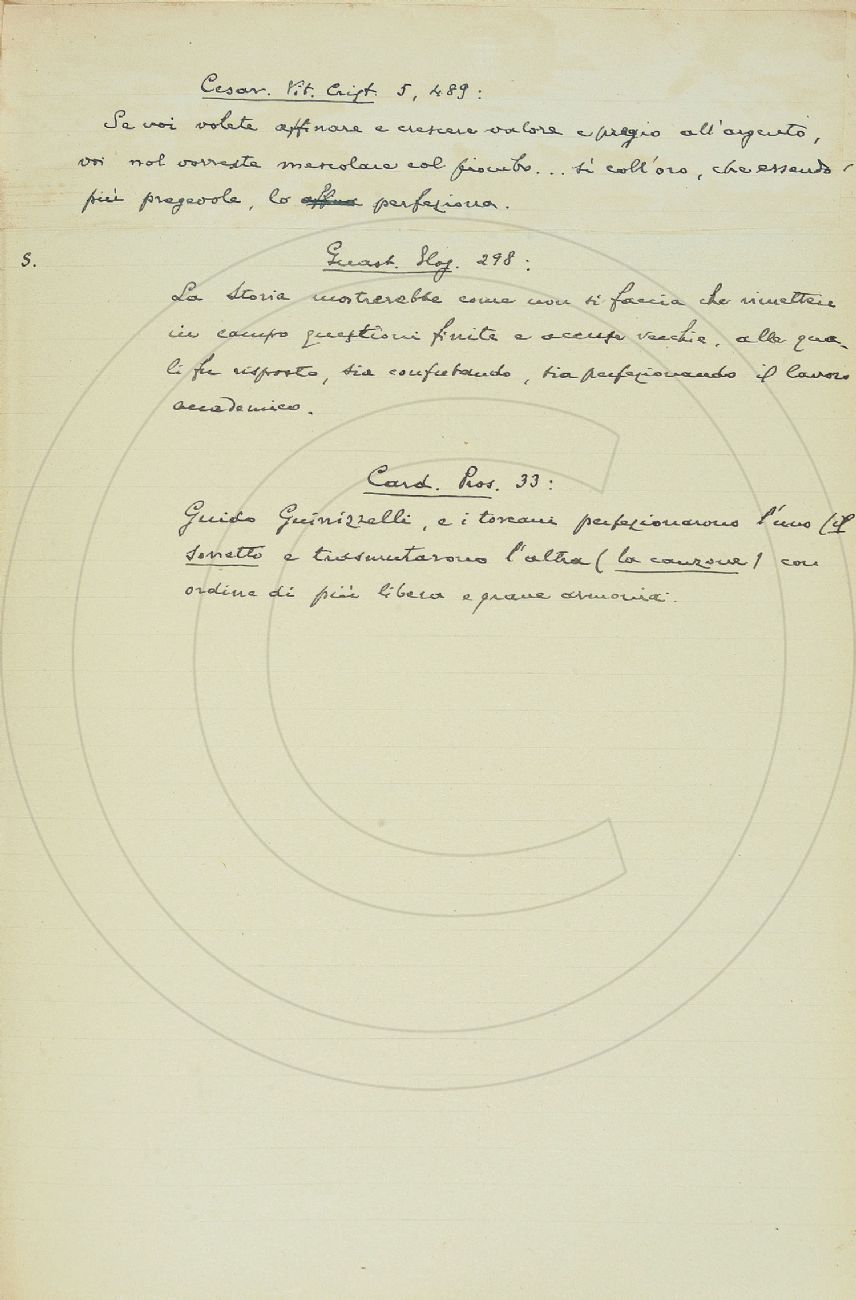 Cesar. Vit. Crist. 5, 489:
Se voi volete affinare e crescere valore e pregio all'argento,
voi nol vorreste mescolare col piombo... sì coll'oro, che essendo
più pregevole, lo perfeziona.
S. Guast. Elog. 298:
La Storia mostrerebbe come non si faccia che rimettere
in campo questioni finite e accuse vecchie, alle qua-
li fu risposto, sia confutando, sia perfezionando il lavoro
accademico.
Card. Pros. 33:
Guido Guinizzelli, e i toscani perfezionarono l'uno (il
sonetto e trasmutarono l'altra (la canzone) con
ordine di più libera e grave armonia.